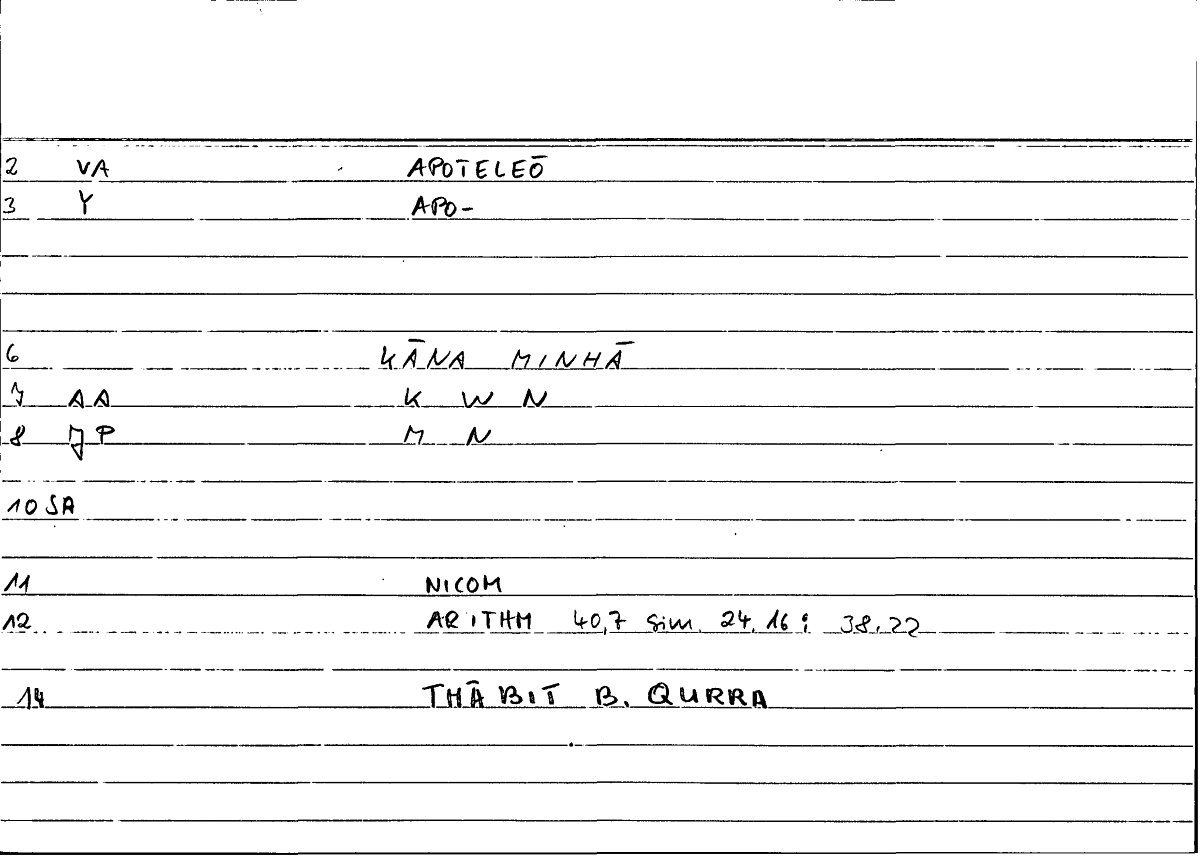 2 VA APOTELEŌ
3 Y APO-
6 KĀNA MINHĀ
7 AA K W N
8 JP M N
10 SA
11 NICOM
12 ARITHM 40,7 sim. 24,16; 38,22
14 THĀBIT B. QURRA